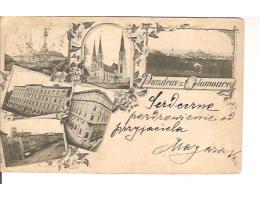 Pozdrav z Olomouce
Serdeczne
pozdrowienie od
przyjaciela